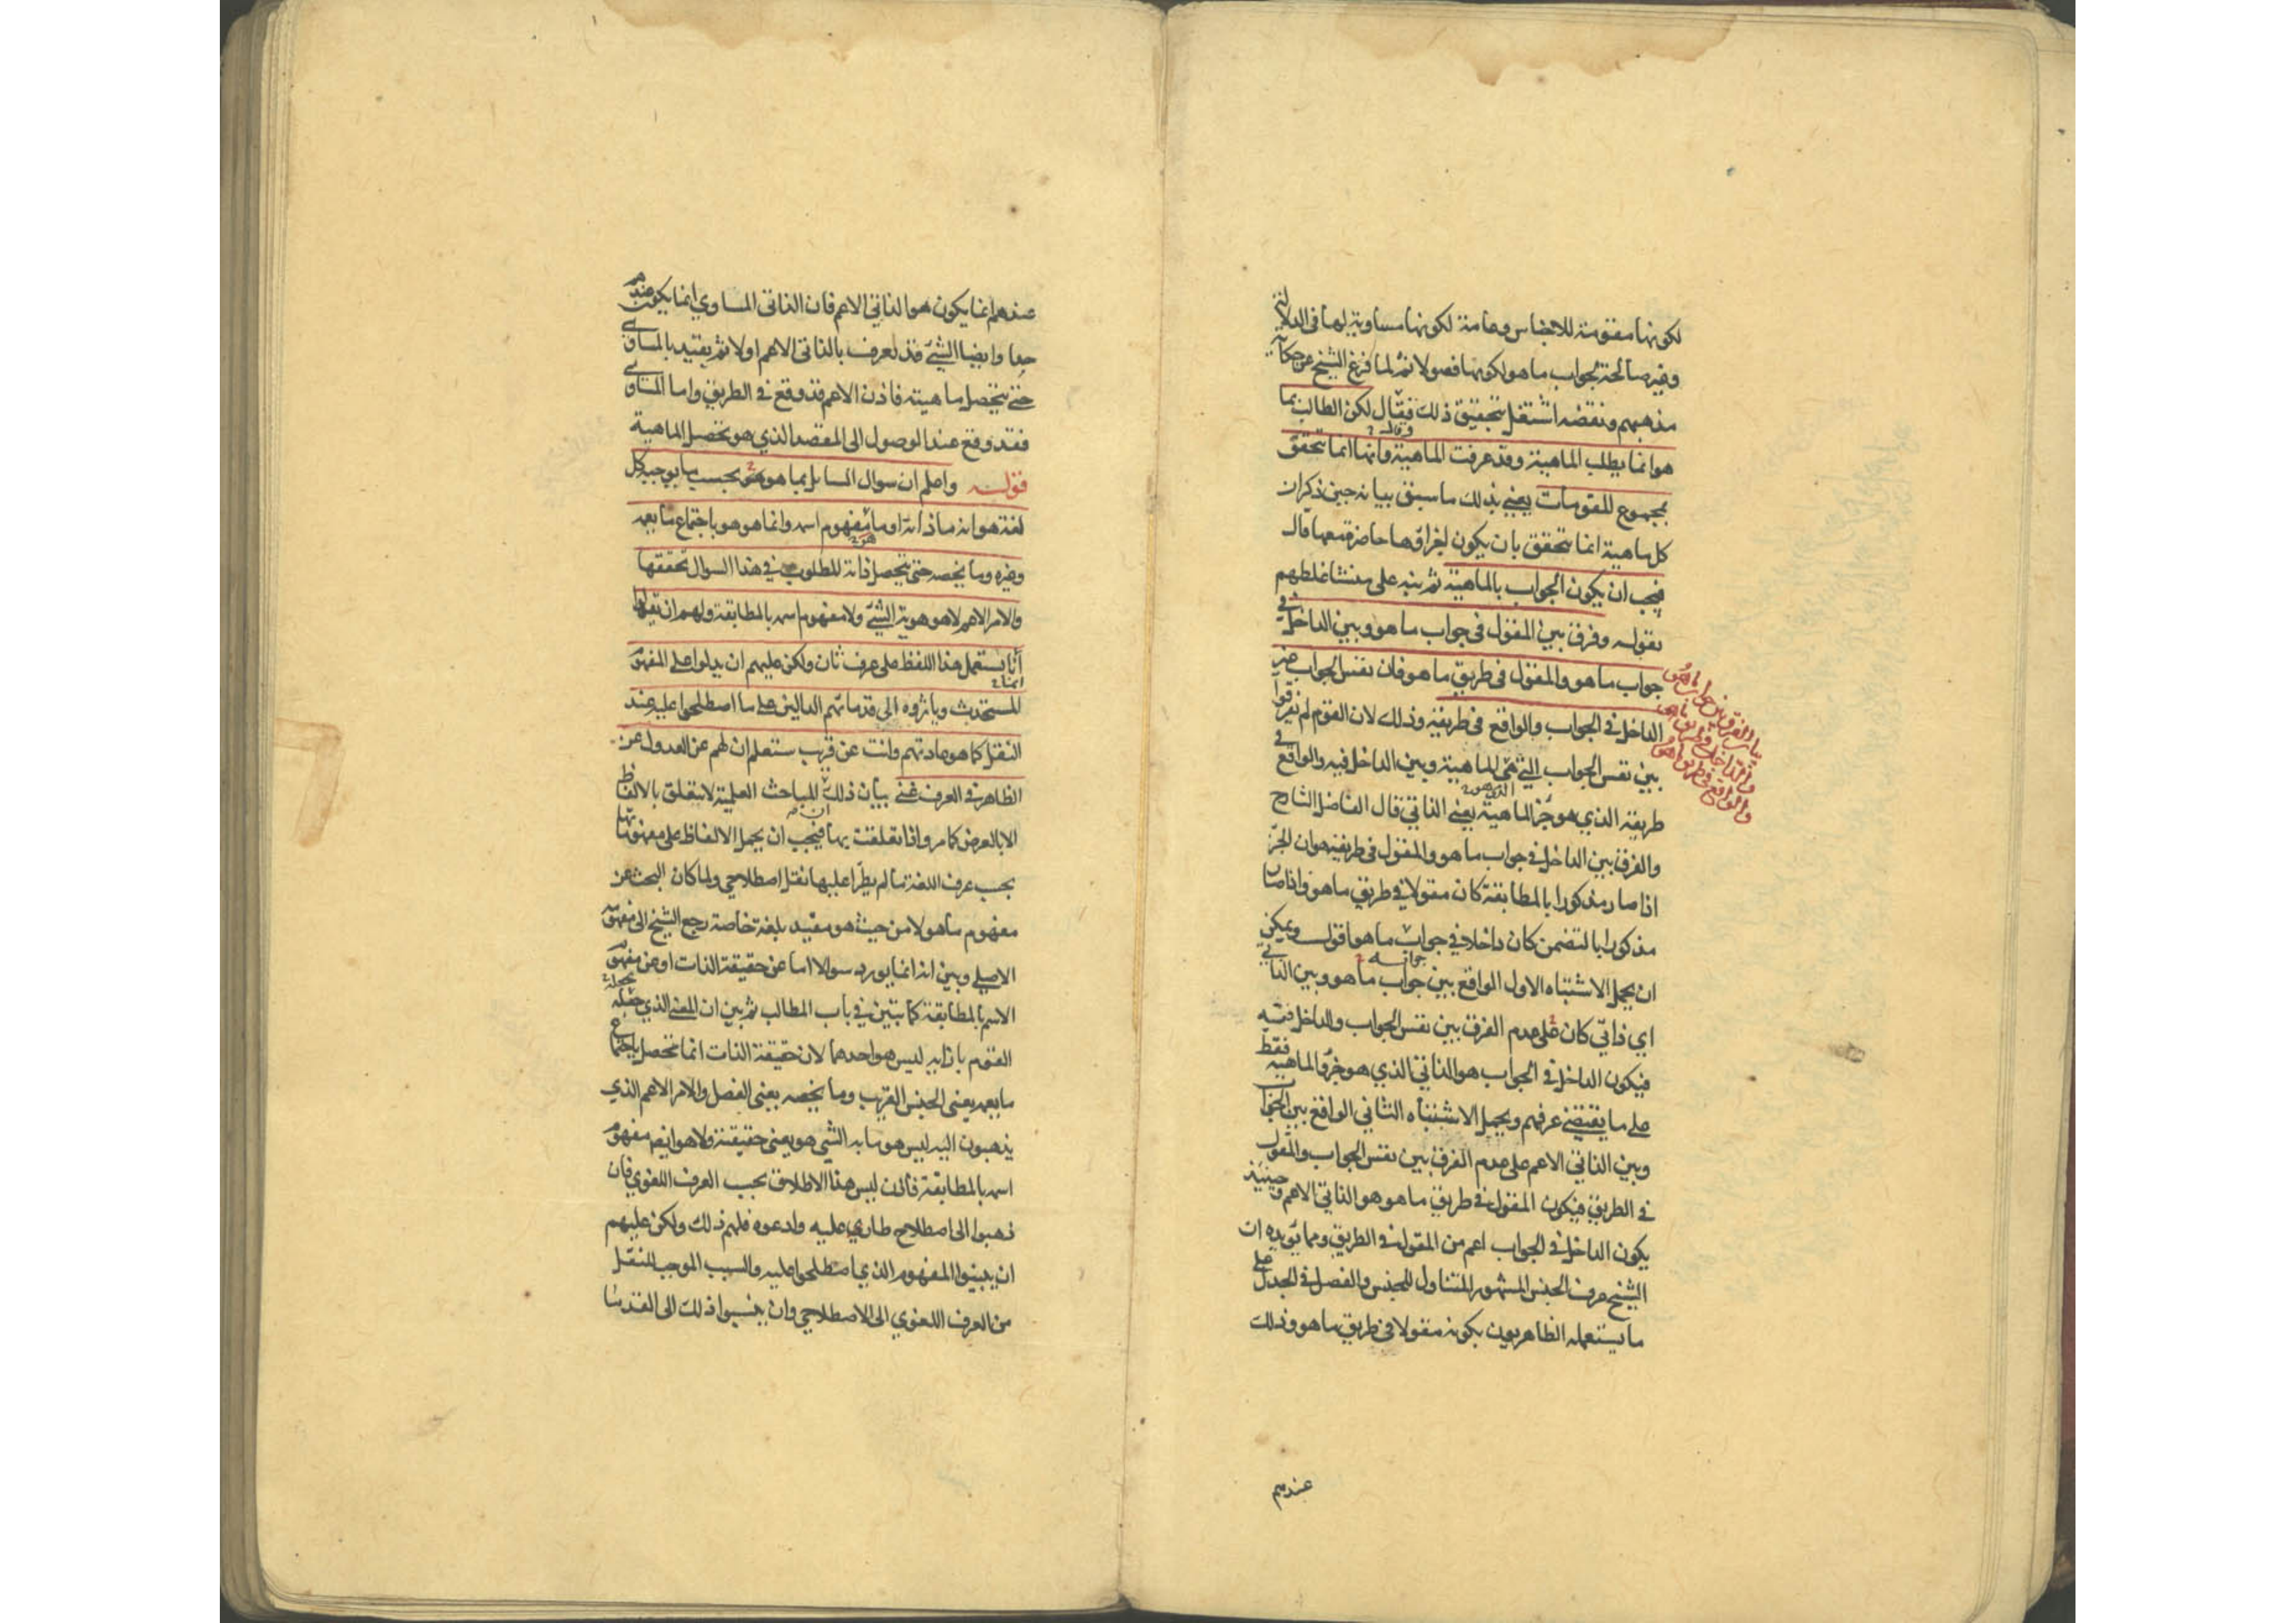 لكونها مقومة للاجناس وعامة لكونها مساوية لها في الدلالة
وغير صالحة لجواب ما هو لكونها فصولا ثم لما فرغ الشيخ عن حكاية
مذهبهم ونقضه اشتغل بتحقيق ذلك فقال لكن الطالب بما
هو انما يطلب الماهية وقد عرفت الماهية وانها انما تتحقق
بمجموع المقومات يعني بذلك ما سبق بيانه حين ذكر ان
كل ماهية انما تتحقق بان يكون اجزاؤها حاضرة معها قال
فيجب ان يكون الجواب بالماهية ثم نبه على منشا غلطهم
بقوله وفرق بين المقول في جواب ما هو وبين الداخل في
جواب ما هو والمقول في طريق ما هو فان نفس الجواب غير
الداخل في الجواب والواقع في طريقه وذلك لان القوم لم يفرقوا
بين نفس الجواب التي هي الماهية وبين الداخل فيه والواقع في
طريقه الذي هو جزء الماهية يعني الذاتي قال الفاضل الشارح
والفرق بين الداخل في جواب ما هو والمقول في طريقه هو ان الجزء
اذا صار مذكورا بالمطابقة كان مقولا في طريق ما هو واذا صار
مذكورا بالتضمن كان داخلا في جواب ما هو اقول ويمكن
ان يحمل الاشتباه الاول الواقع بين جواب ما هو وبين الذاتي
اي ذاتي كان على عدم الفرق بين نفس الجواب والداخل فيه
فيكون الداخل في الجواب هو الذاتي الذي هو جزء الماهية فقط
على ما يقتضي عرفهم ويحمل الاشتباه الثاني الواقع بين الجواب
وبين الذاتي الاعم على عدم الفرق بين نفس الجواب والمقول
في الطريق فيكون المقول في طريق ما هو هو الذاتي الاعم وحينئذ
يكون الداخل في الجواب اعم من المقول في الطريق ومما يؤيده ان
الشيخ عرف الجنس المشهور المتناول للجنس والفصل في الجدل على
ما يستعمله الظاهريون بكونه مقولا في طريق ما هو وذلك
عندهم
بيان الفرق بين جواب ما هو
والداخل في جواب ما هو
والواقع في طريق ما هو
عندهم انما يكون هو الذاتي الاعم فان الذاتي المساوي انما يكون عندهم
حدا وايضا الشيء قد يعرف بالذاتي الاعم اولا ثم يقيد بالمساوي
حتى يتحصل ماهيته فاذن الاعم قد وقع في الطريق واما المساوي
فقد وقع عند الوصول الى المقصد الذي هو تحصل الماهية
قوله واعلم ان سوال السائل بما هو بحسب ما يوجبه كل
لغة هو انه ما ذاته او ما مفهوم اسمه وانما هو هو باجتماع ما يعمه
وغيره وما يخصه حتى يتحصل ذاته المطلوب في هذا السوال تحققها
والامر الاعم لا هو هوية الشيء ولا مفهوم اسمه بالمطابقة ولهم ان يقولوا
انا نستعمل هذا اللفظ على عرف ثان ولكن عليهم ان يدلوا على المفهوم
المستحدث وياثروه الى قدمائهم الدالين على ما اصطلحوا عليه عند
النقل كما هو عادتهم وانت عن قريب ستعلم ان لهم عن العدول عن
الظاهر في العرف غنى بيان ذلك ان المباحث العلمية لا تتعلق بالالفاظ
الا بالعرض كما مر واذا تعلقت بها فيجب ان يحمل الالفاظ على مفهوماتها
بحسب عرف اللغة ما لم يطرا عليها نقل اصطلاحي ولما كان البحث عن
مفهوم ما هو لا من حيث هو مقيد بلغة خاصة رجع الشيخ الى مفهومه
الاصلي وبين انه انما يورد سوالا اما عن حقيقة الذات او عن مفهوم
الاسم بالمطابقة كما تبين في باب المطالب ثم بين ان المعنى الذي جعله
القوم بازائه ليس هو احدهما لان حقيقة الذات انما تحصل باجتماع
ما يعمه يعني الجنس القريب وما يخصه يعني الفصل والامر الاعم الذي
يذهبون اليه ليس هو ما به الشي هو يعني حقيقته ولا هو ايضا مفهوم
اسمه بالمطابقة فاذن ليس هذا الاطلاق بحسب العرف اللغوي فان
ذهبوا الى اصطلاح طاري عليه وادعوه فلهم ذلك ولكن عليهم
ان يبينوا المفهوم الذي اصطلحوا عليه والسبب الموجب للنقل
من العرف اللغوي الى الاصطلاحي وان ينسبوا ذلك الى القدما